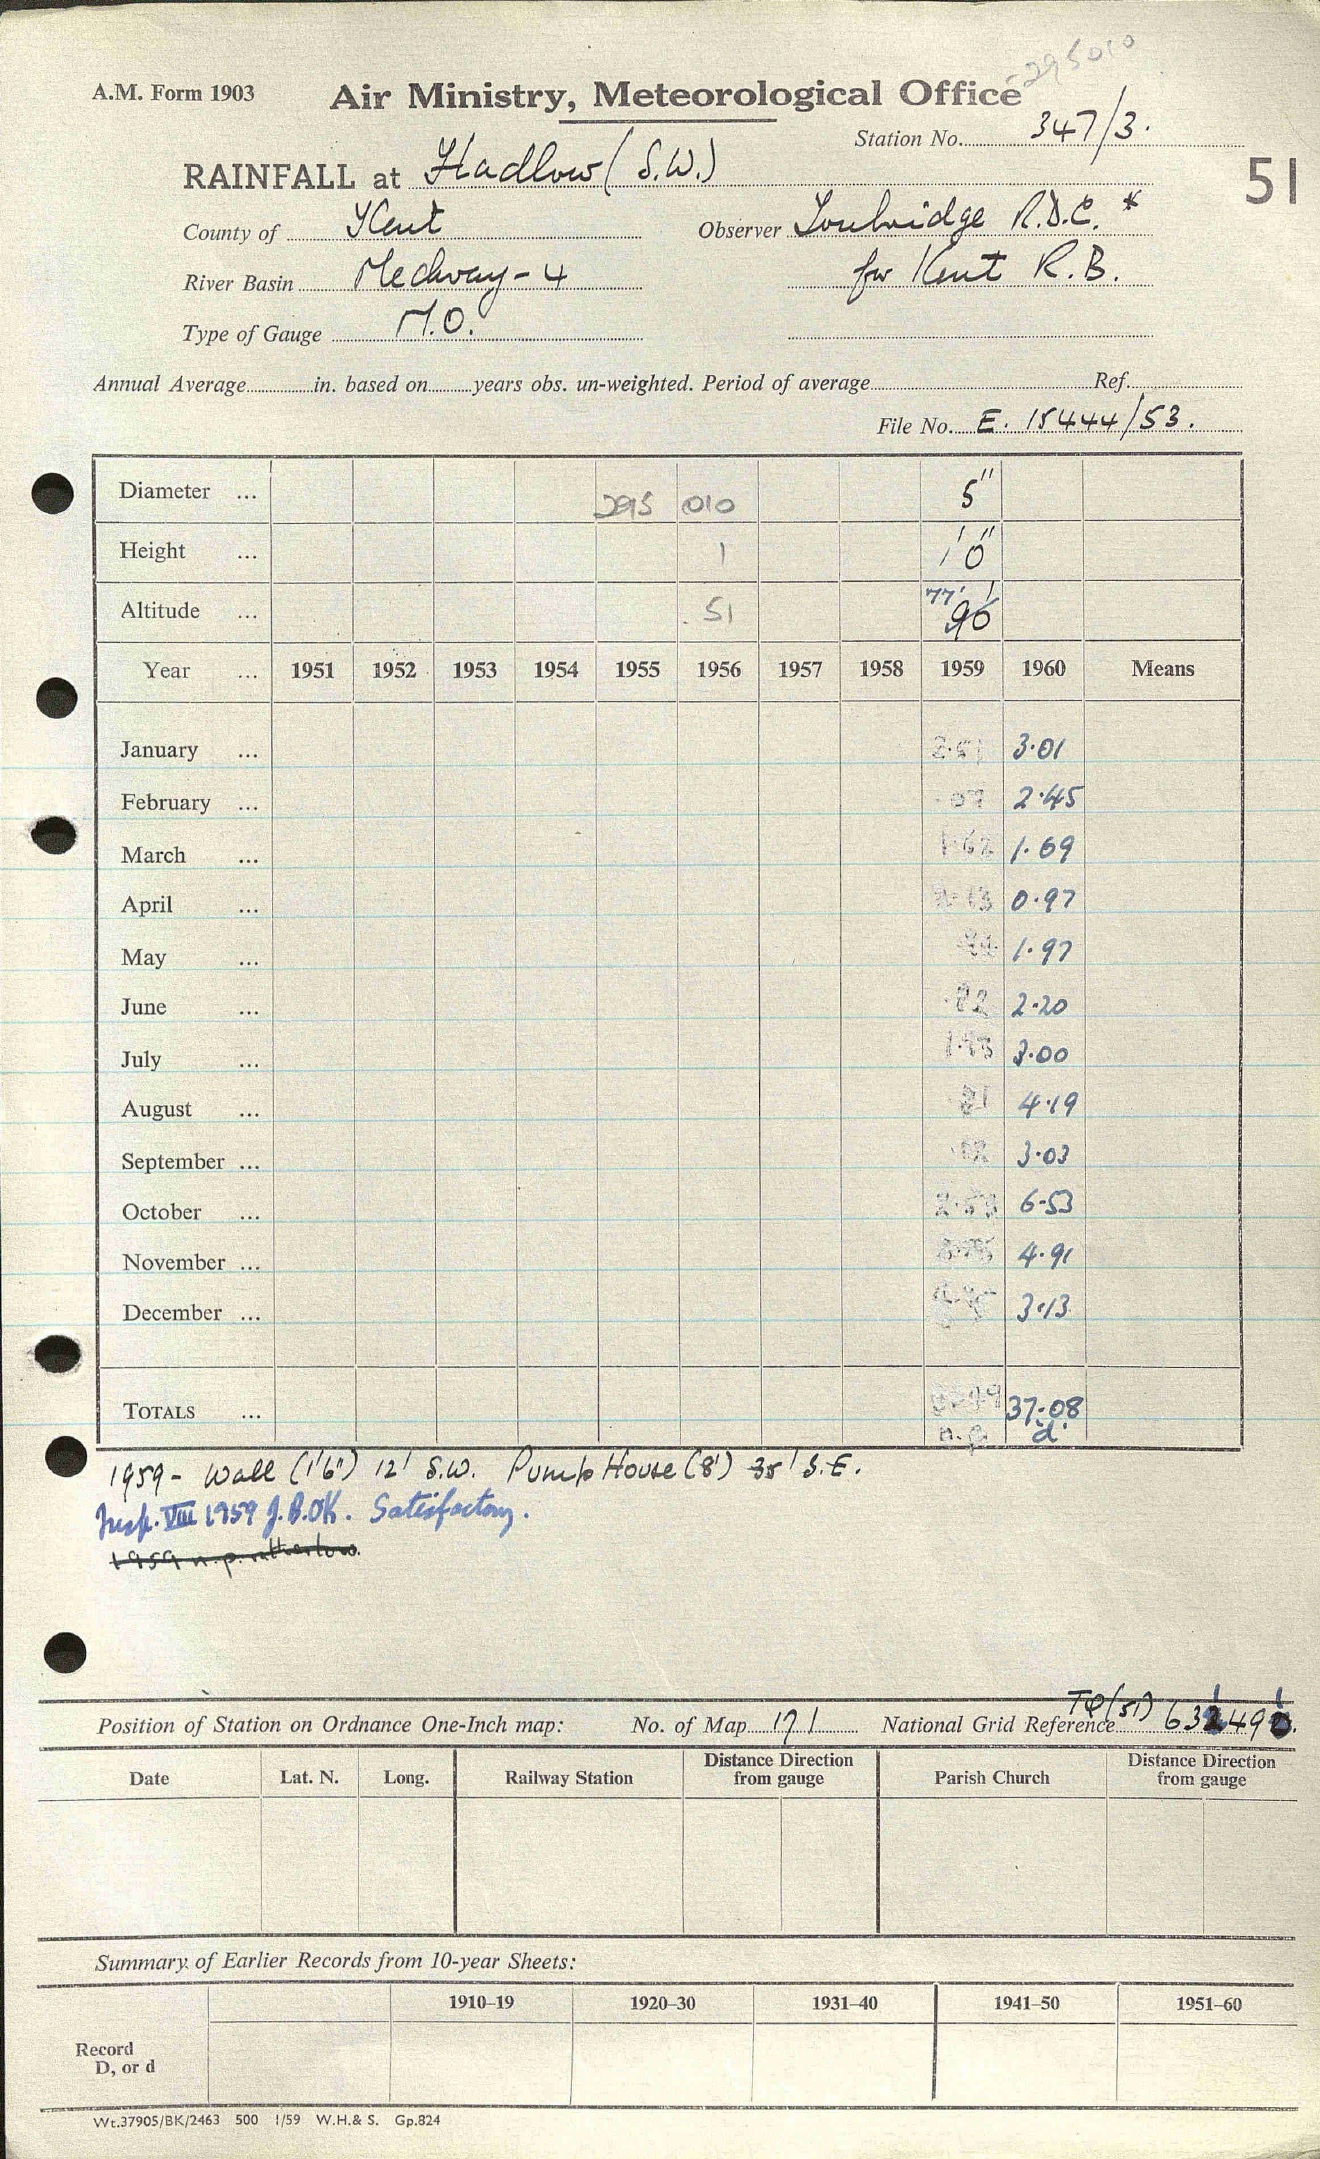 295010
A.M. Form 1903 Air Ministry, Meteorological Office
Station No. 347/3.
RAINFALL at Hadlow (S.W.)
51
County of Kent Observer Tonbridge R.D.C. *
River Basin Medway - 4 for Kent R.B.
Type of Gauge M.O.
Annual Average in. based on years obs. un-weighted. Period of average Ref.
File No. E. 15444/53.
Diameter ... 295 010 5"
Height ... 1 1'0"
Altitude ... 51 77' 90'
Year ... 1951 1952 1953 1954 1955 1956 1957 1958 1959 1960 Means
January ... 3.01
February ... 2.45
March ... 1.69
April ... 0.97
May ... 1.97
June ... 2.20
July ... 3.00
August ... 4.19
September ... 3.03
October ... 6.53
November ... 4.91
December ... 3.13
TOTALS ... 37.08
n.p. d.
1959 - Wall (1'6") 12' S.W. Pump House (8') 35' S.E.
Insp. VIII 1959 J.B.OK. Satisfactory.
1959 n.p. rather low.
Position of Station on Ordnance One-Inch map: No. of Map 171 National Grid Reference TQ(51)
Date Lat. N. Long. Railway Station Distance Direction from gauge Parish Church Distance Direction from gauge
Summary of Earlier Records from 10-year Sheets:
1910–19 1920–30 1931–40 1941–50 1951–60
Record
D, or d
Wt.37905/BK/2463 500 1/59 W.H.& S. Gp.824